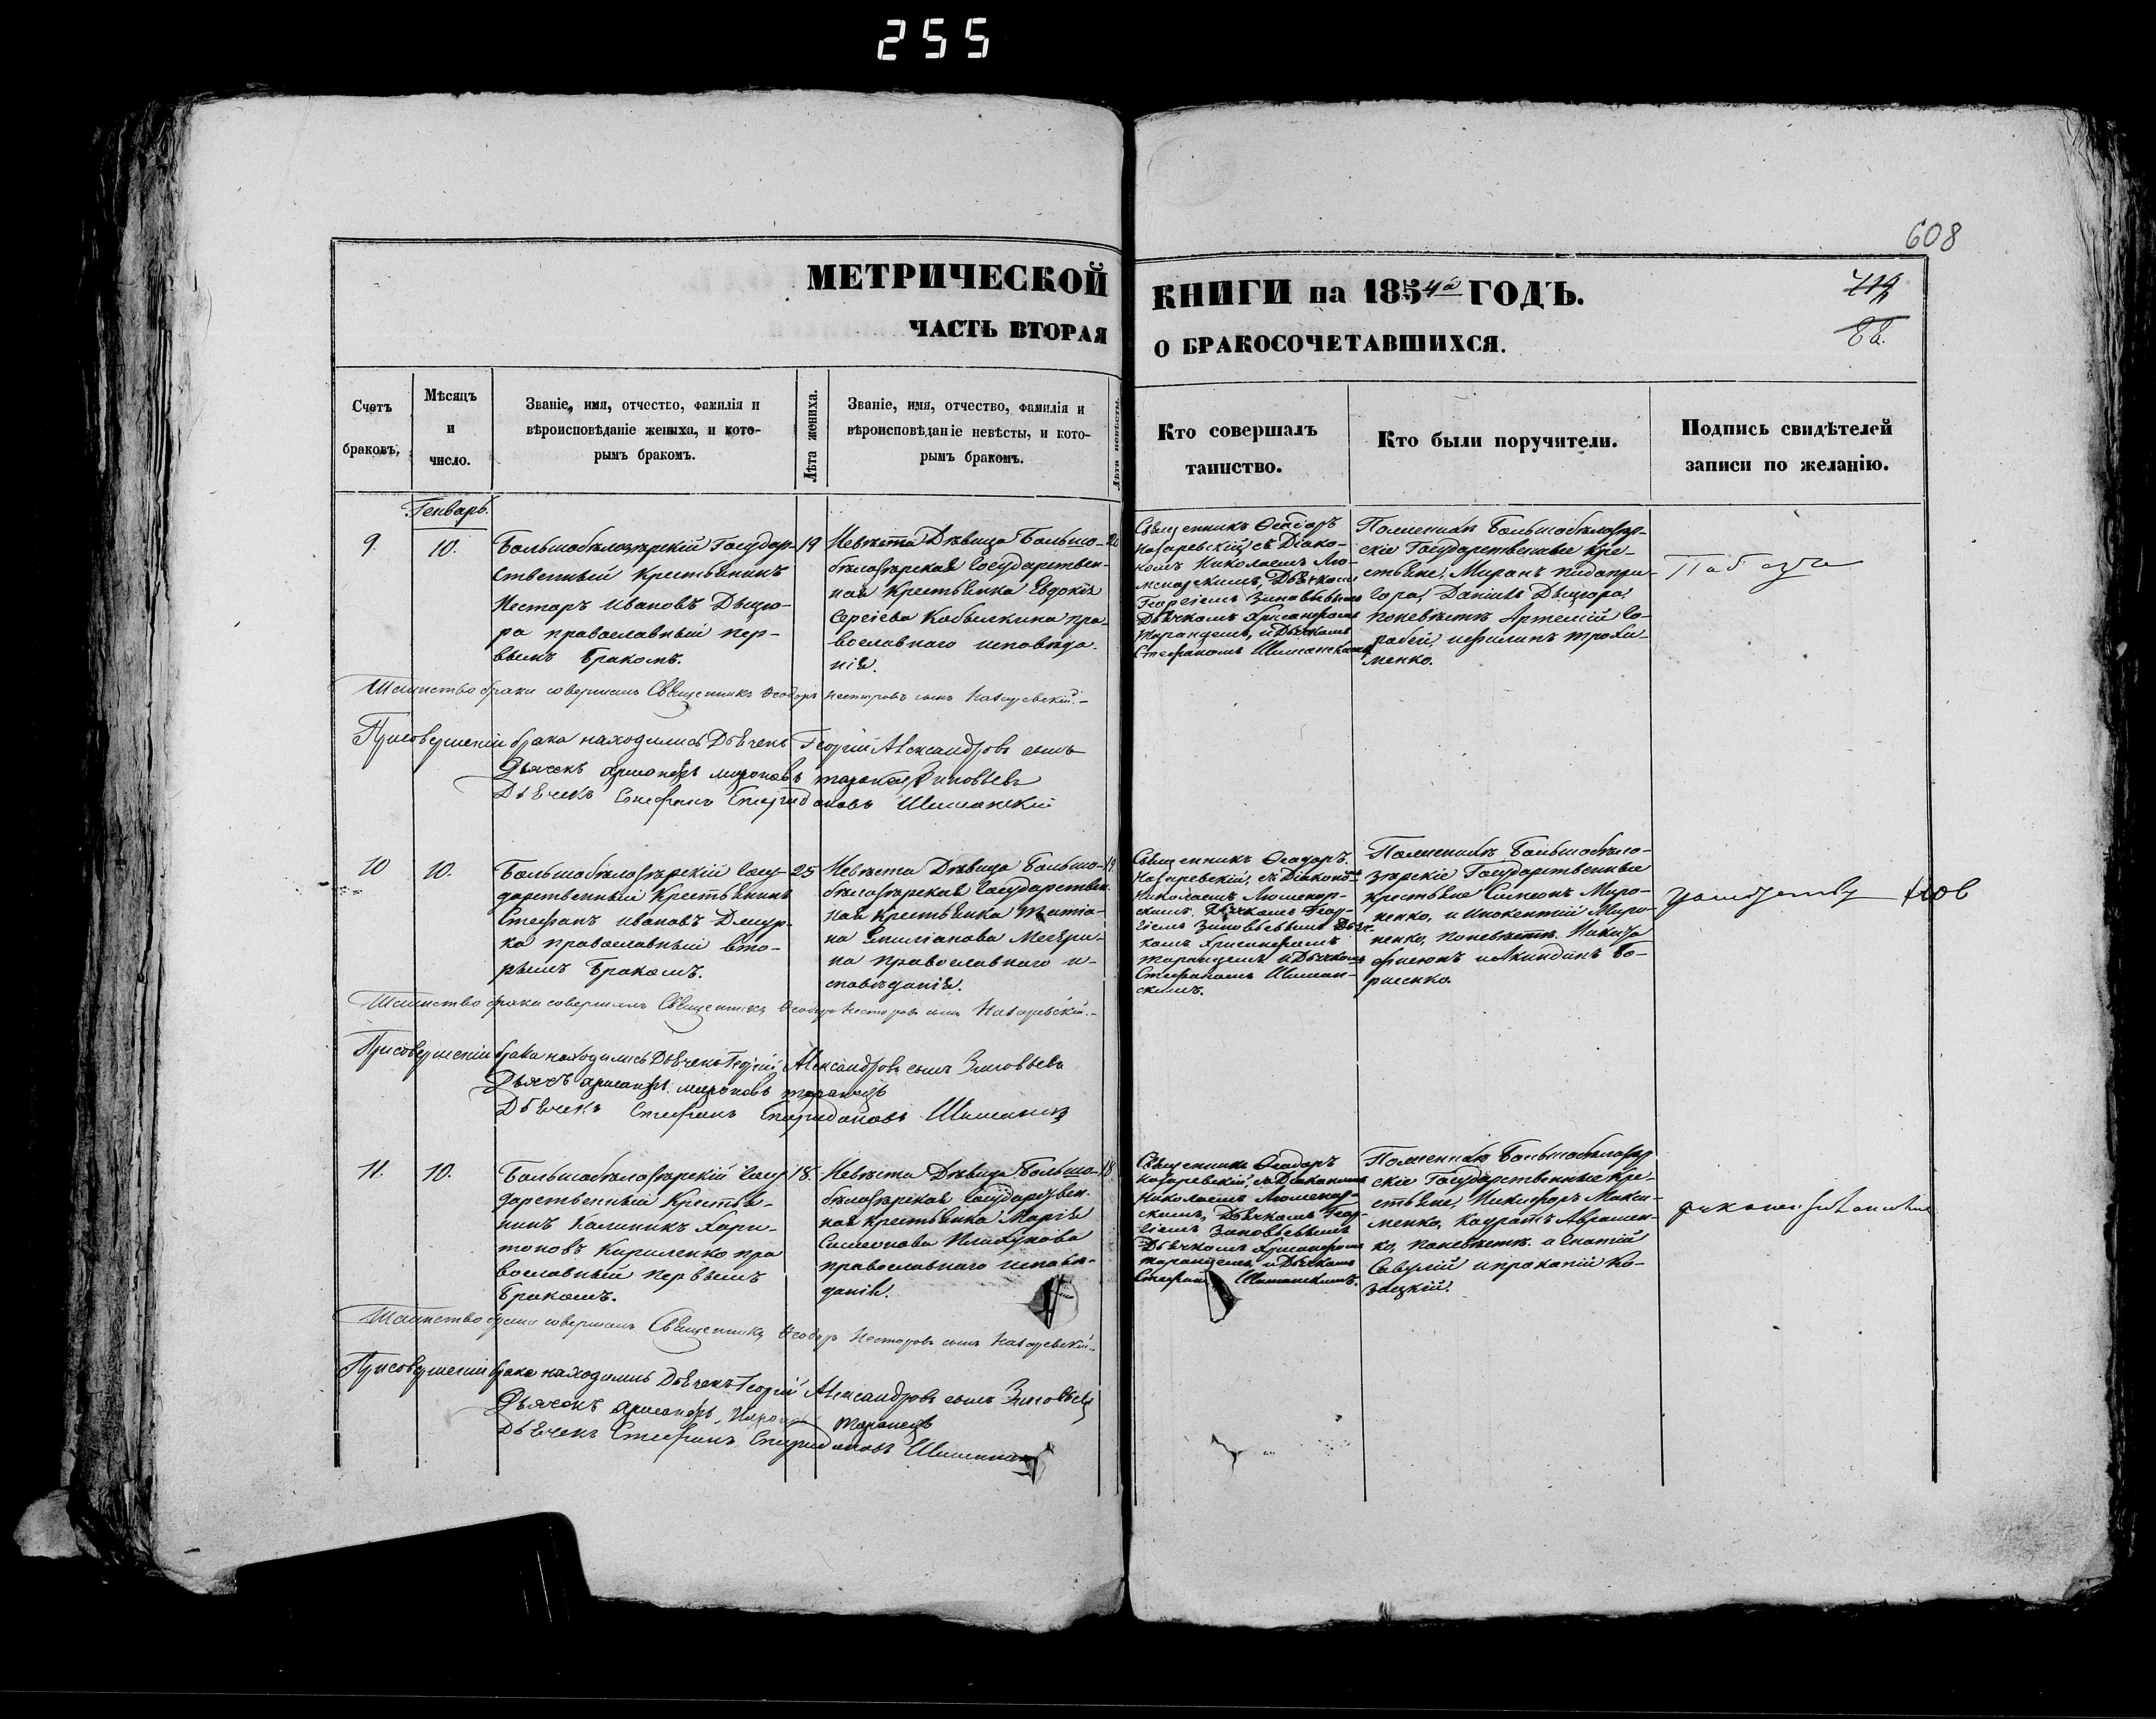 255
608
МЕТРИЧЕСКОЙ
КНИГИ на 1854го ГОДЪ.
ЧАСТЬ ВТОРАЯ
О БРАКОСОЧЕТАВШИХСЯ.
88.
Счетъ браковъ,
Мѣсяцъ и число.
Званіе, имя, отчество, фамилія и
вѣроисповѣданіе жениха, и кото-
рымъ бракомъ.
Лѣта жениха.
Званіе, имя, отчество, фамилія и
вѣроисповѣданіе невѣсты, и кото-
рымъ бракомъ.
Лѣта невѣсты.
Кто совершалъ
таинство.
Кто были поручители.
Подпись свидѣтелей
записи по желанію.
Генварь.
9.
10.
Большобѣлозѣрскій Государ-
ственный Крестьянинъ
Несторъ Ивановъ Дыщю-
ра православный пер-
вымъ бракомъ.
19
Невѣста Дѣвица Большо-
бѣлозѣрская Государствен-
ная Крестьянка Евдокія
Сергіева Кобылкина пра-
вославнаго исповѣда-
нія.
20
Священникъ Ѳеодоръ
Назаревскій, съ Діако-
номъ Николаемъ Лю-
менарскимъ, Дьячкомъ
Георгіемъ Зиновьевымъ
Дьячкомъ Хрисанфомъ
Таранцемъ, и Дьячкомъ
Стефаномъ Шиманскимъ
По женихѣ Большобѣлозѣр-
скіе Государственные Кре-
стьяне, Миронъ Пидопри-
гора, Даніилъ Дыщюра,
по невѣстѣ Артемій Со-
рабей, и Филипъ Трохи-
менко.
Таинство брака совершалъ Священникъ Ѳеодоръ Несторовъ сынъ Назаревскій.
При совершеніи брака находились Дьячекъ Георгій Александровъ сынъ
Зиновьевъ
Дьячекъ Хрисанфъ Мироновъ Таранецъ
Дьячекъ Стефанъ Спиридоновъ Шиманскій
10
10.
Большобѣлозѣрскій Госу-
дарственный Крестьянинъ
Стефанъ Ивановъ Дмур-
ка православный вто-
рымъ бракомъ.
25
Невѣста Дѣвица Большо-
бѣлозѣрская Государствен-
ная Крестьянка Татіа-
на Емиліанова Мегери-
на православнаго и-
сповѣданія.
19.
Священникъ Ѳеодоръ
Назаревскій, съ Діакономъ
Николаемъ Люменар-
скимъ, Дьячкомъ Геор-
гіемъ Зиновьевымъ Дьяч-
комъ Хрисанфомъ
Таранцемъ и Дьячкомъ
Стефаномъ Шиман-
скимъ.
По женихѣ Большобѣло-
зѣрскіе Государственные
крестьяне Симеонъ Миро-
ненко, и Инокентій Миро-
ненко, по невѣстѣ. Никита
и Акиндинъ Бо-
рисенко.
Таинство брака совершалъ Священникъ Ѳеодоръ Несторовъ сынъ Назаревскій.
При совершеніи брака находились Дьячекъ Георгій Александровъ сынъ Зиновьевъ
Дьячекъ Хрисанфъ Мироновъ Таранецъ
Дьячекъ Стефанъ Спиридоновъ
11.
10.
Большобѣлозѣрскій Госу-
дарственный Крестья-
нинъ Калиникъ Хари-
тоновъ Кириленко пра
вославный первымъ
бракомъ.
18.
Невѣста Дѣвица Большо-
бѣлозѣрская Государствен-
ная крестьянка Марія
Симеонова Плахунова
православнаго исповѣ-
данія.
18
Священникъ Ѳеодоръ
Назаревскій, съ Діакономъ
Николаемъ Люменар-
скимъ, Дьячкомъ Геор-
гіемъ Зиновьевымъ
Дьячкомъ Хрисанфомъ
Таранцемъ, и Дьячкомъ
Стефан Шиманскимъ.
По женихѣ Большобѣлозѣр
скіе Государственные Кре-
стьяне, Никифоръ Макси-
менко, Кодратъ Авраменко-
ко, по невѣстѣ. Игнатій
Саверскій и Прокопій Ко-
зацкій.
Таинство брака совершалъ Священникъ Ѳеодоръ Несторовъ сынъ Назаревскій.
При совершеніи брака находились Дьячекъ Георгій Александровъ сынъ Зиновьевъ
Дьячекъ Хрисанфъ Таранецъ
Дьячекъ Стефанъ Спиридоновъ